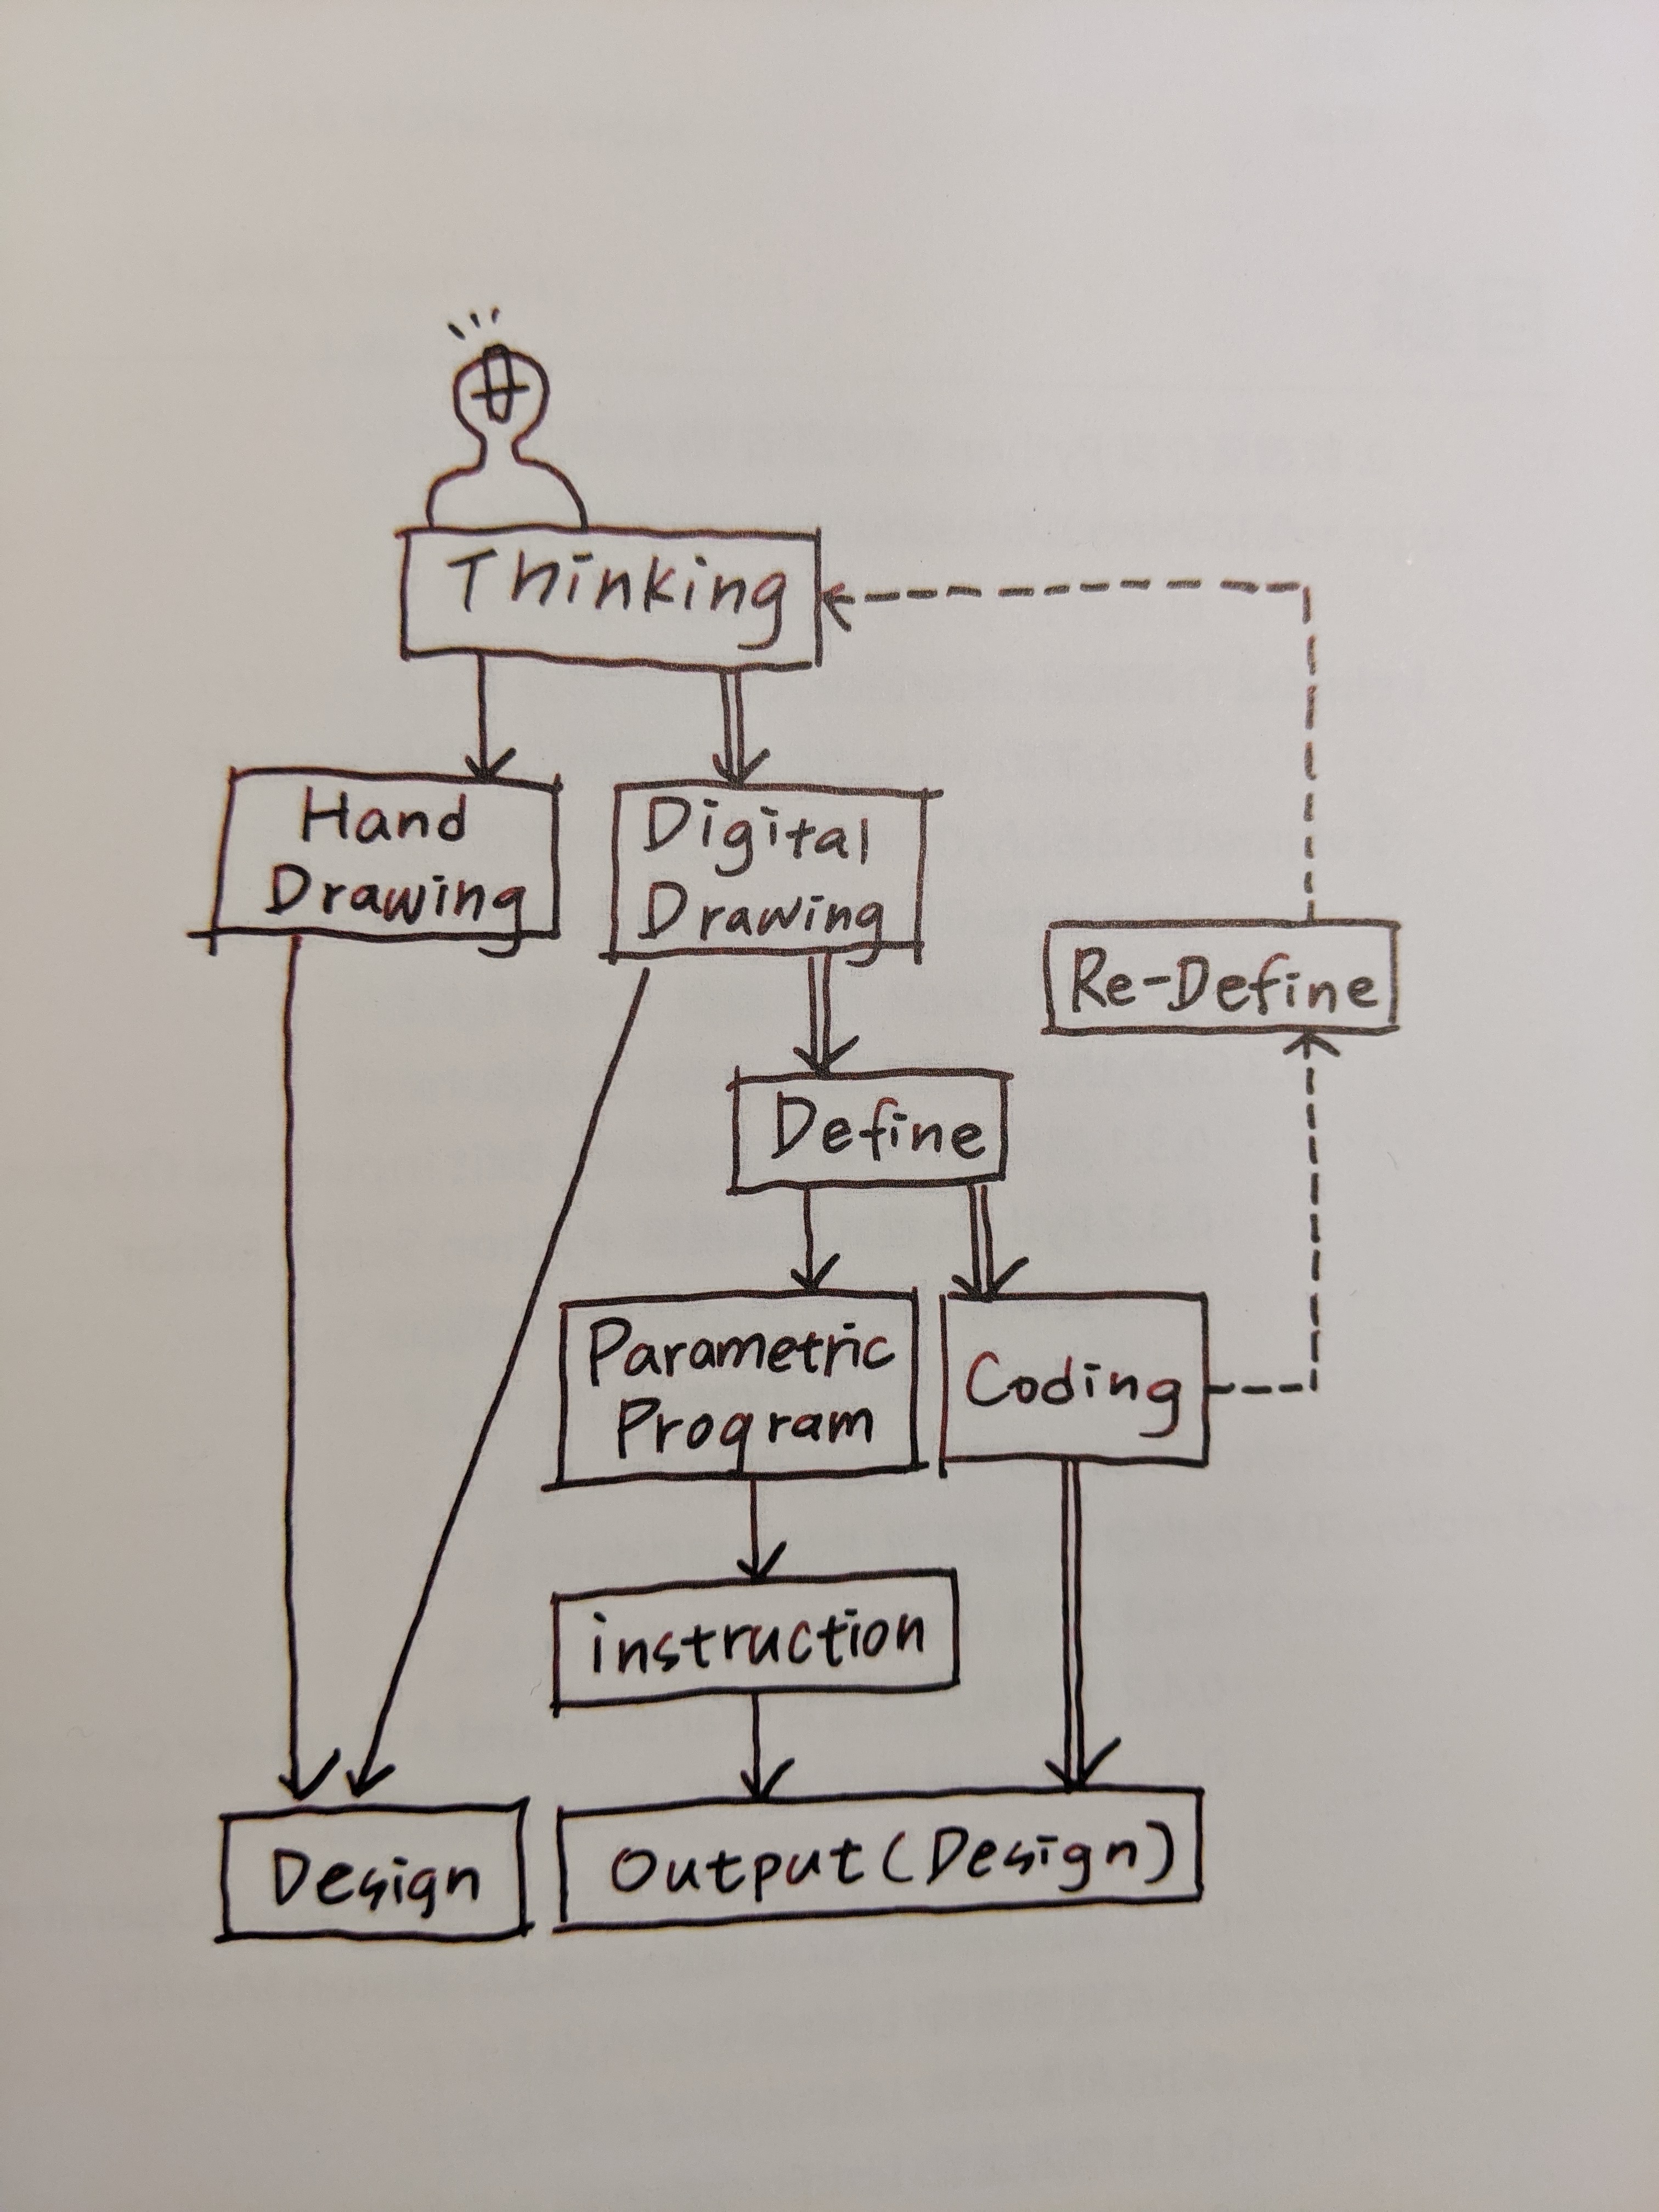 Thinking
Hand
Drawing
Digital
Drawing
Re-Define
Define
Parametric
Program
Coding
instruction
Design
Output(Design)